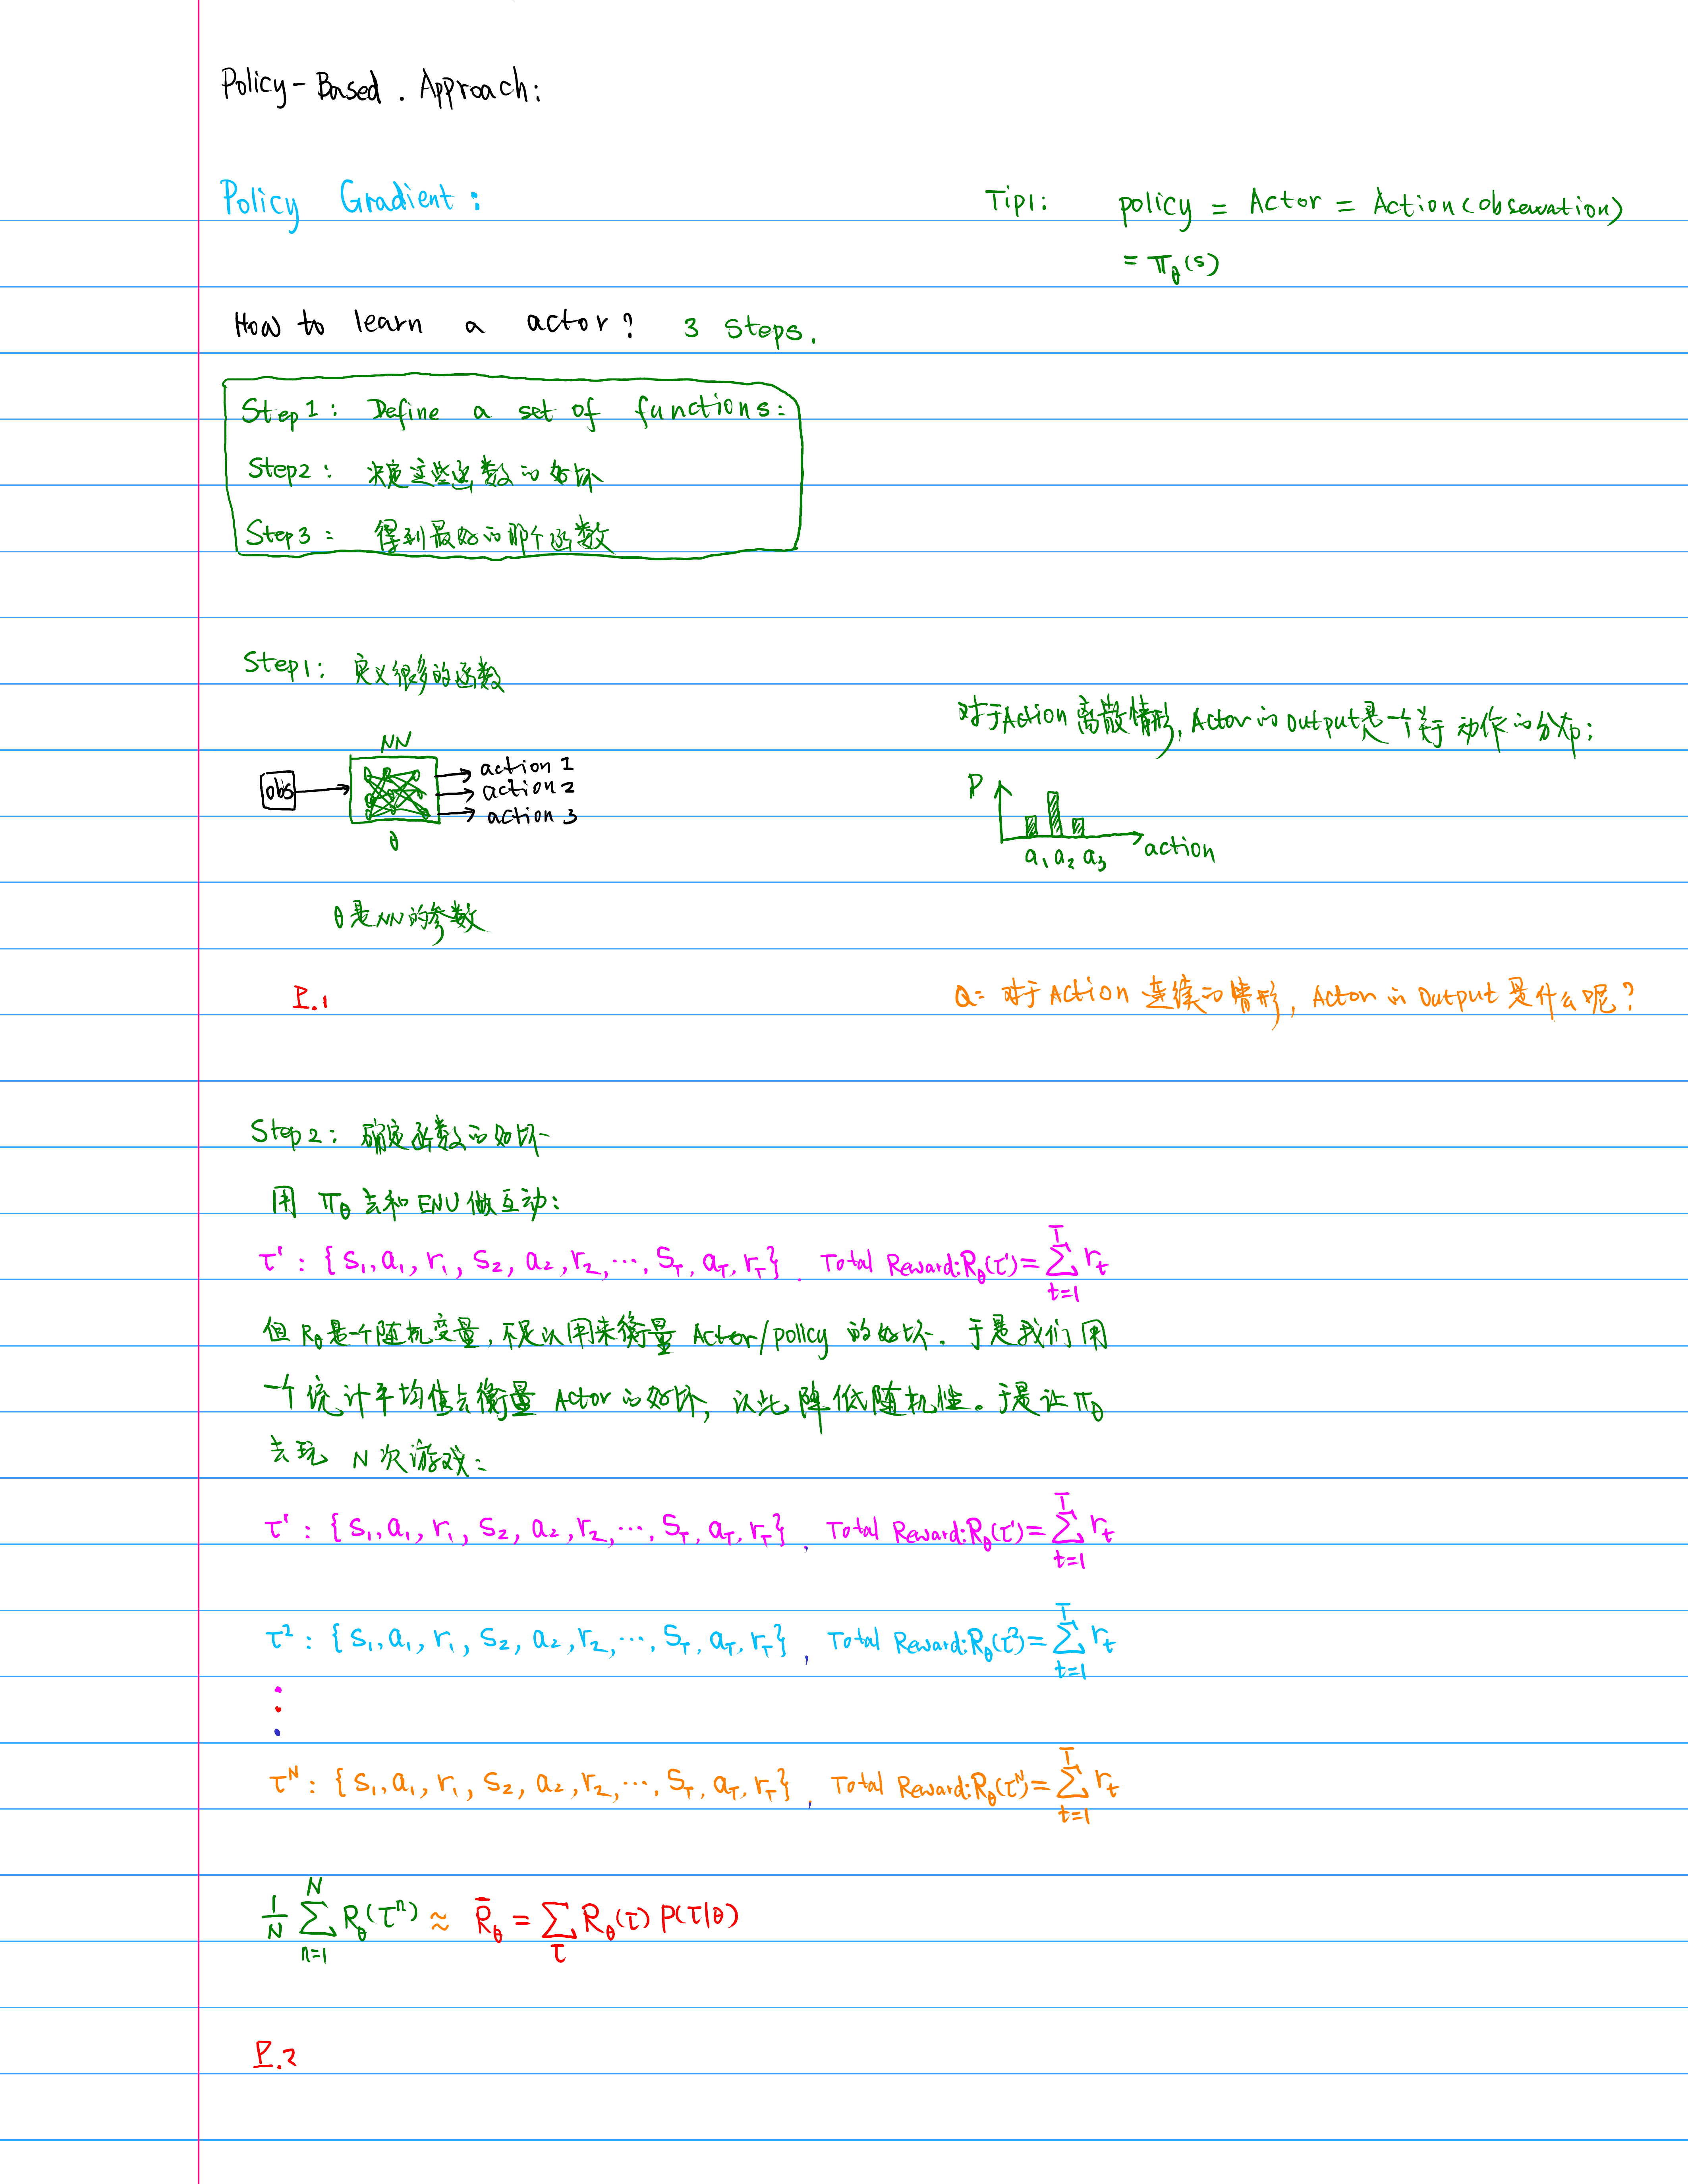 Policy-Based . Approach:
Policy Gradient:
Tip1: policy = Actor = Action(observation)
= π_θ(s)
How to learn a actor? 3 steps.
Step1: Define a set of functions:
Step2: 决定这些函数的好坏
Step3: 得到最好的那个函数
Step1: 定义很多的函数
NN
obs
action 1
action 2
action 3
θ
θ是NN的参数
P.1
对于Action离散情形, Actor的Output是一个关于动作的分布:
P
a₁ a₂ a₃
action
Q: 对于Action 连续的情形, Actor的Output是什么呢?
Step2: 确定函数的好坏
用 π_θ 去和ENV做互动:
τ¹: {s₁, a₁, r₁, s₂, a₂, r₂, ..., s_T, a_T, r_T}. Total Reward: R_θ(τ¹) = ∑_{t=1}^{T} r_t
但R_θ是一个随机变量, 不足以用来衡量 Actor/policy 的好坏. 于是我们用
一个统计平均值去衡量 Actor的好坏, 以此降低随机性。于是让 π_θ
去玩 N次游戏:
τ¹: {s₁, a₁, r₁, s₂, a₂, r₂, ..., s_T, a_T, r_T}, Total Reward: R_θ(τ¹) = ∑_{t=1}^{T} r_t
τ²: {s₁, a₁, r₁, s₂, a₂, r₂, ..., s_T, a_T, r_T}, Total Reward: R_θ(τ²) = ∑_{t=1}^{T} r_t
⋮
τᴺ: {s₁, a₁, r₁, s₂, a₂, r₂, ..., s_T, a_T, r_T}, Total Reward: R_θ(τᴺ) = ∑_{t=1}^{T} r_t
1/N ∑_{n=1}^{N} R_θ(τⁿ) ≈ R̄_θ = ∑_τ R_θ(τ) P(τ|θ)
P.2